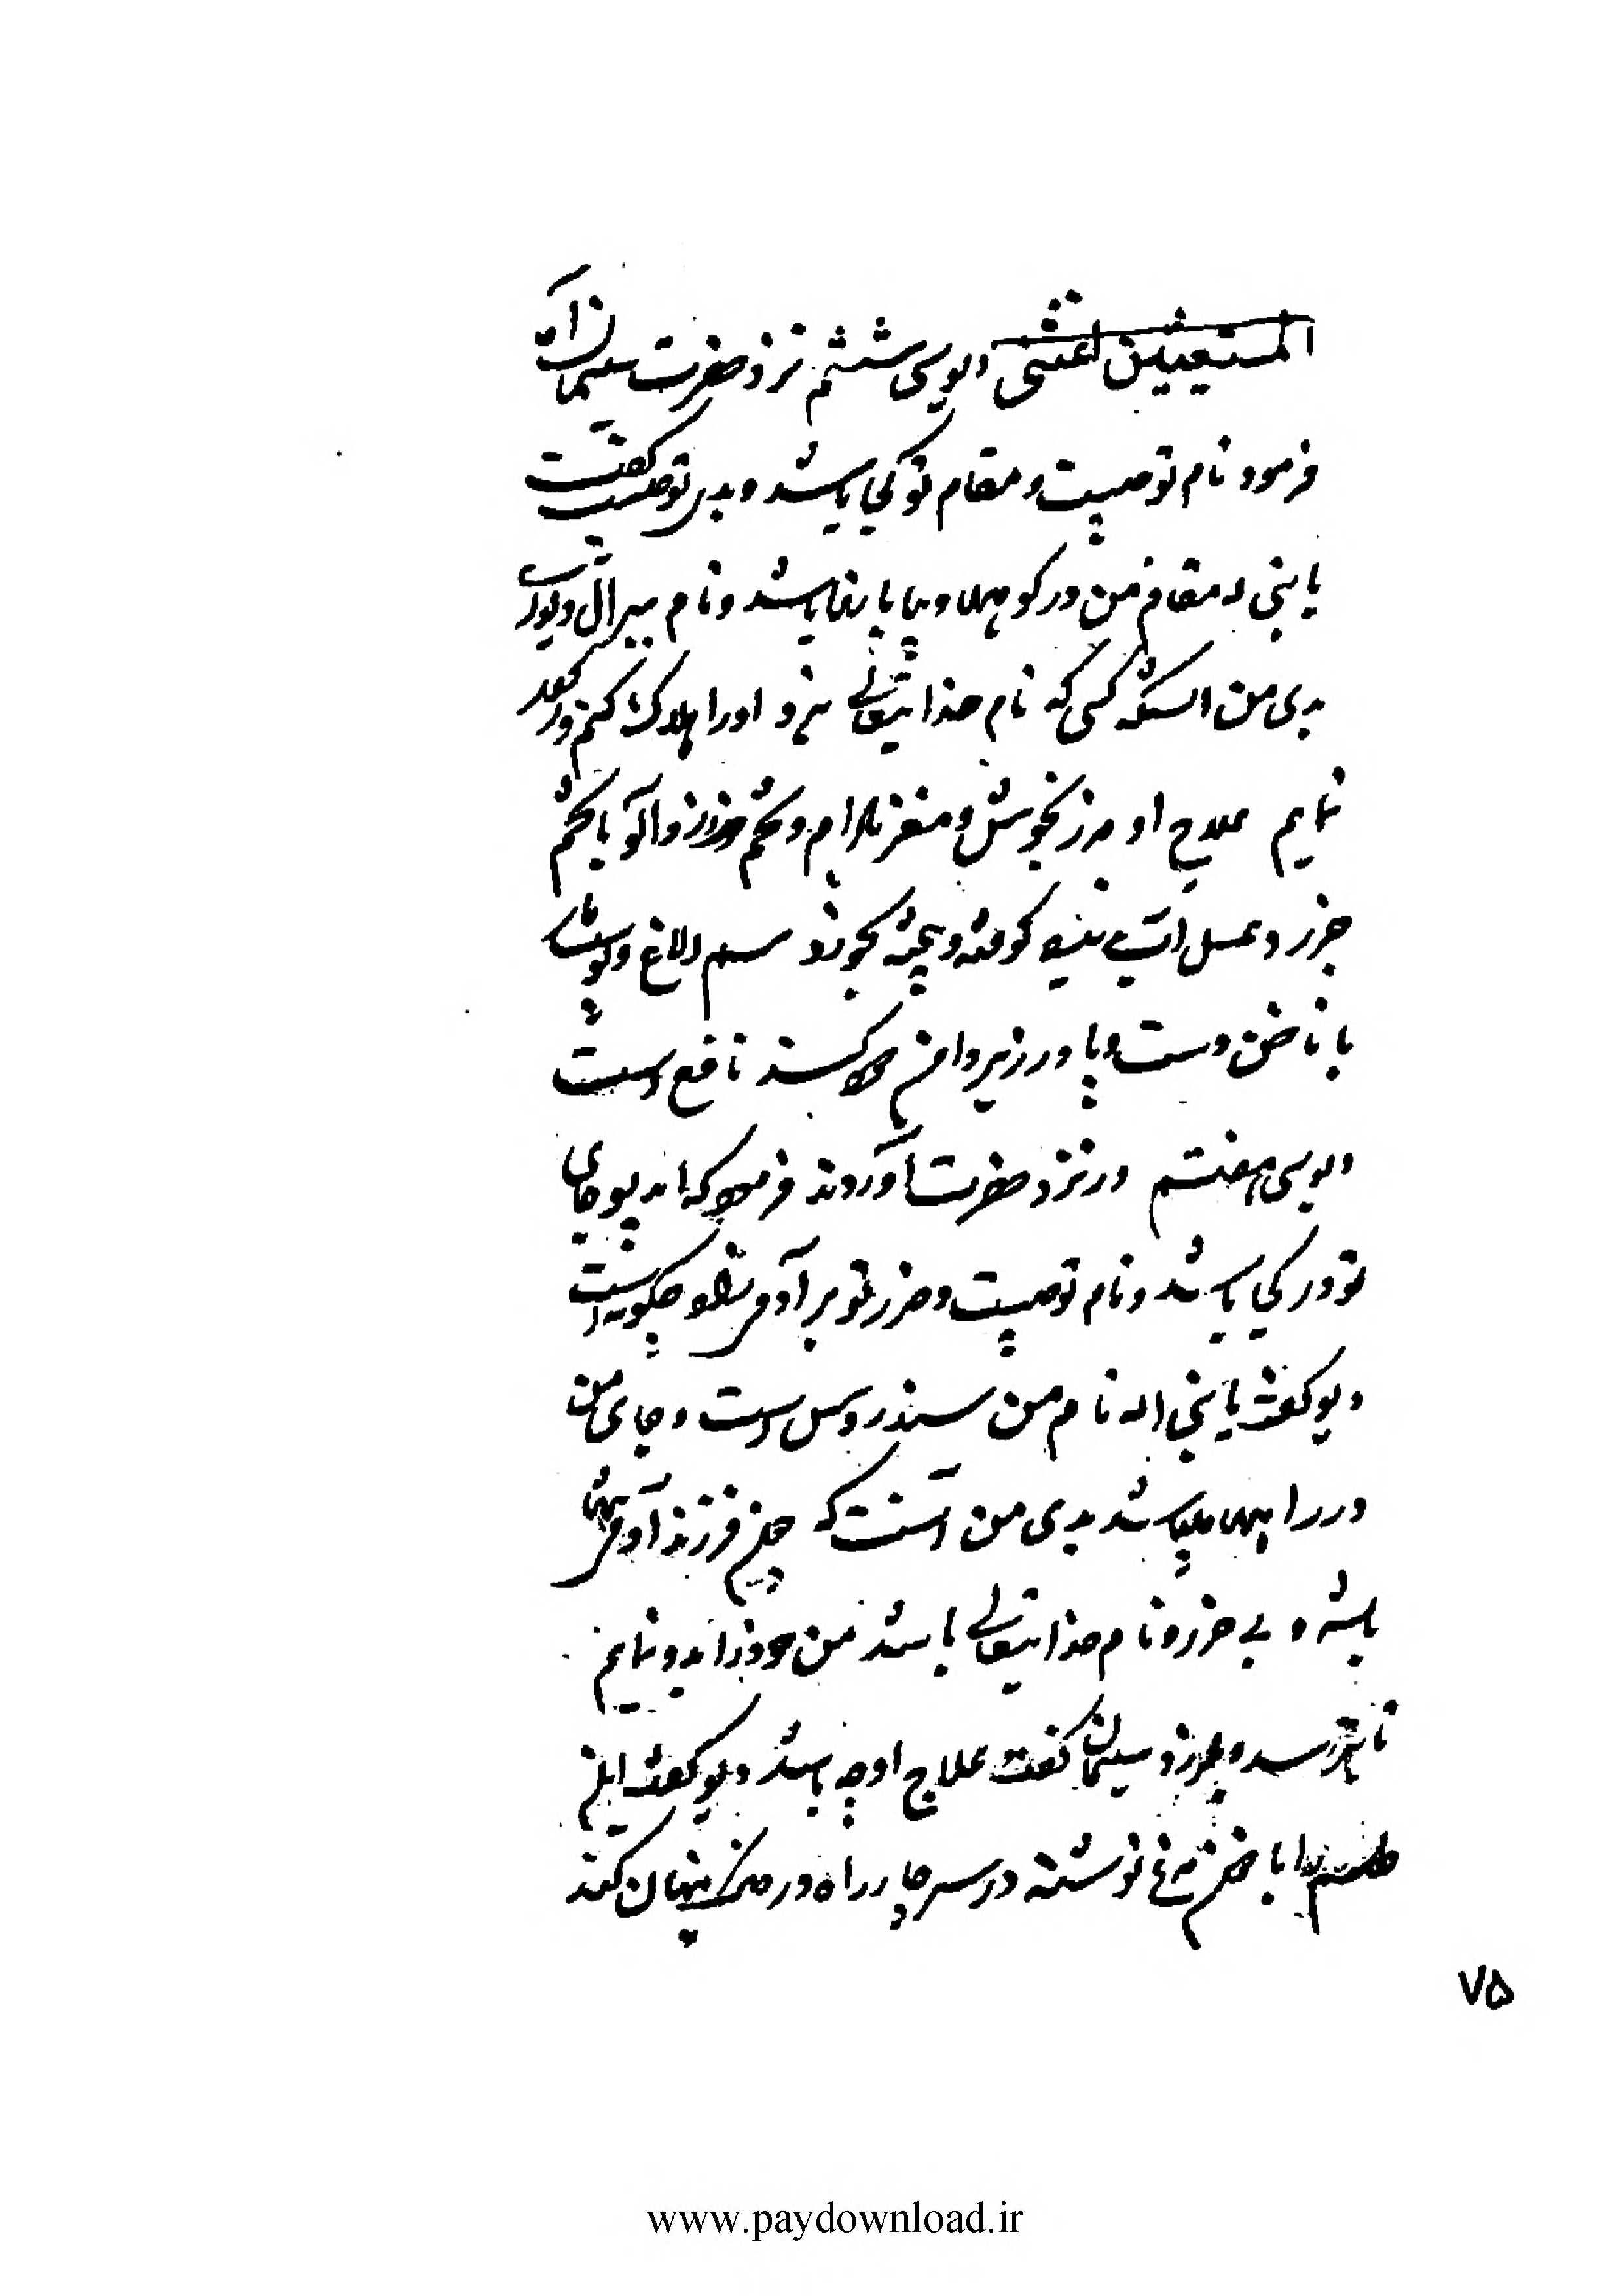 المستغیثین اغثنی دیو سی ششم نزد حضرت سلیمان آمد
فرمود نام تو چیست و مقام تو کجا باشد و بدی تو چیست گفت
یا نبی اله مقام من در کوهها و بیابانها باشد و نام
بدی من آنستکه کسی که نام خدایتعالی نبرد او را هلاک کنم و
نمایم علاج او مرزنجوش و مغز بادام و تخم
و عسل کوفته و پخته بخورند سم الاغ و
با ناخن دست و پا در زیر دامن کنند نافع است
دیو سی هفتم در نزد حضرت آوردند فرمود که ای دیو جای
تو در کجا باشد و نام تو چیست و ضرر تو بر آدمیزاد چگونه است
دیو گفت یا نبی اله نام من سندروس است و جای من
در راهها باشد بدی من آنست که چون فرزند آدم تنها
باشد و بی حرز و نام خدایتعالی باشد من خود را بدو نمایم
تا بترسد و بلرزد سلیمان گفت علاج او چه باشد دیو گفت این
طلسم را با خون مرغ نوشته در سر چهار راه در پنهان کند
۷۵
www.paydownload.ir